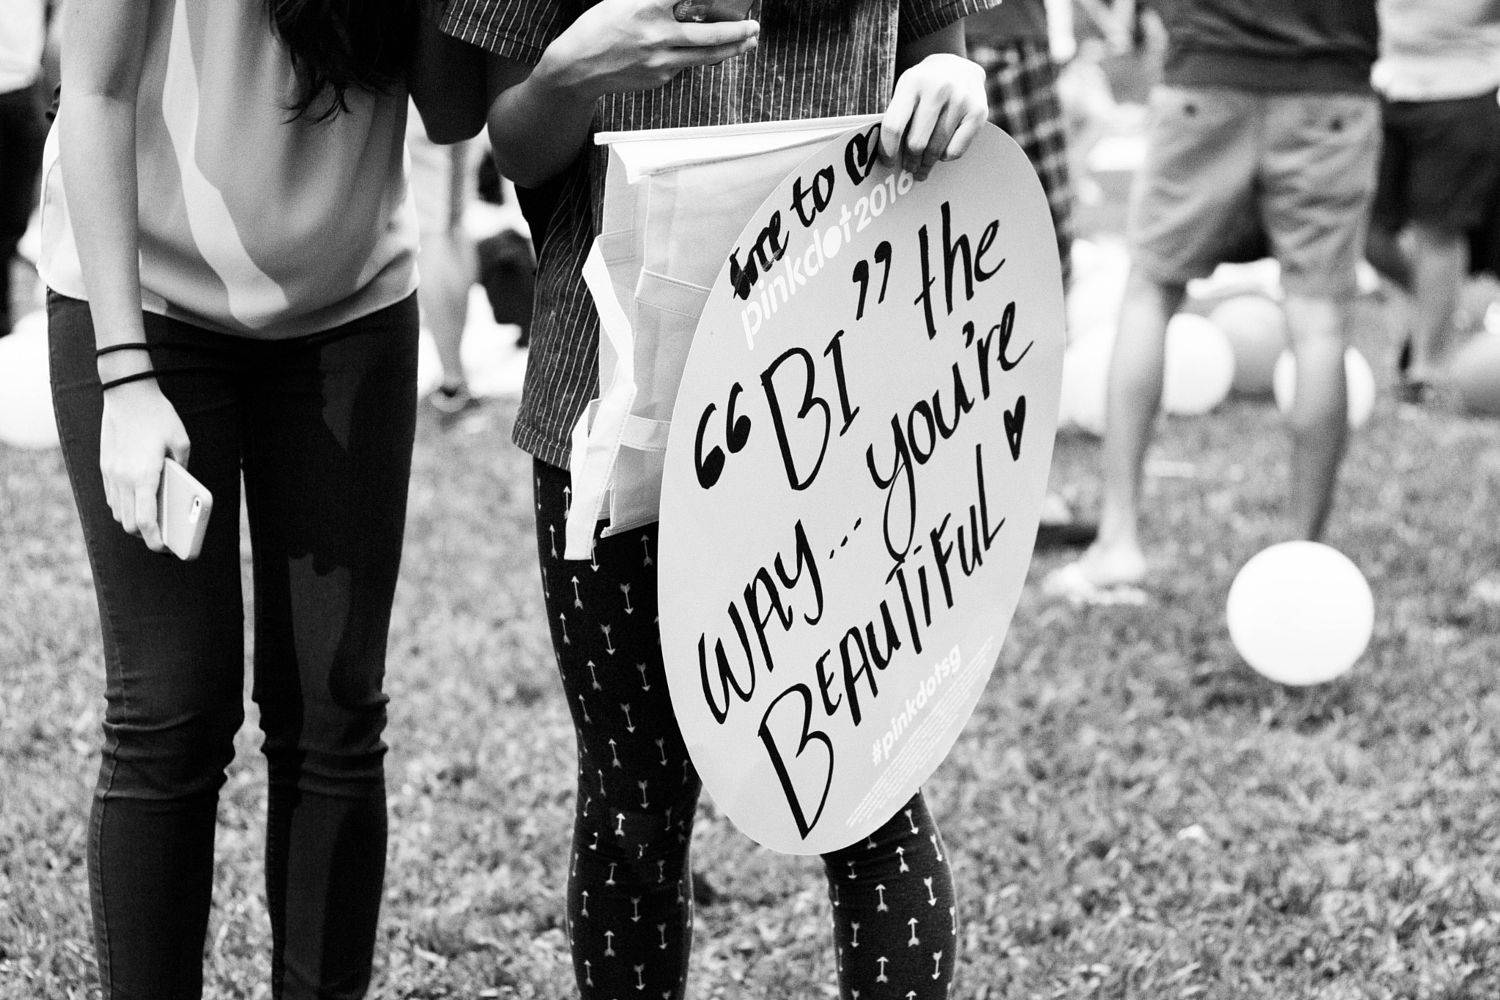 to
pinkdot2016
“BI” the
way... you're
BEAUTiFuL
#pinkdotsg